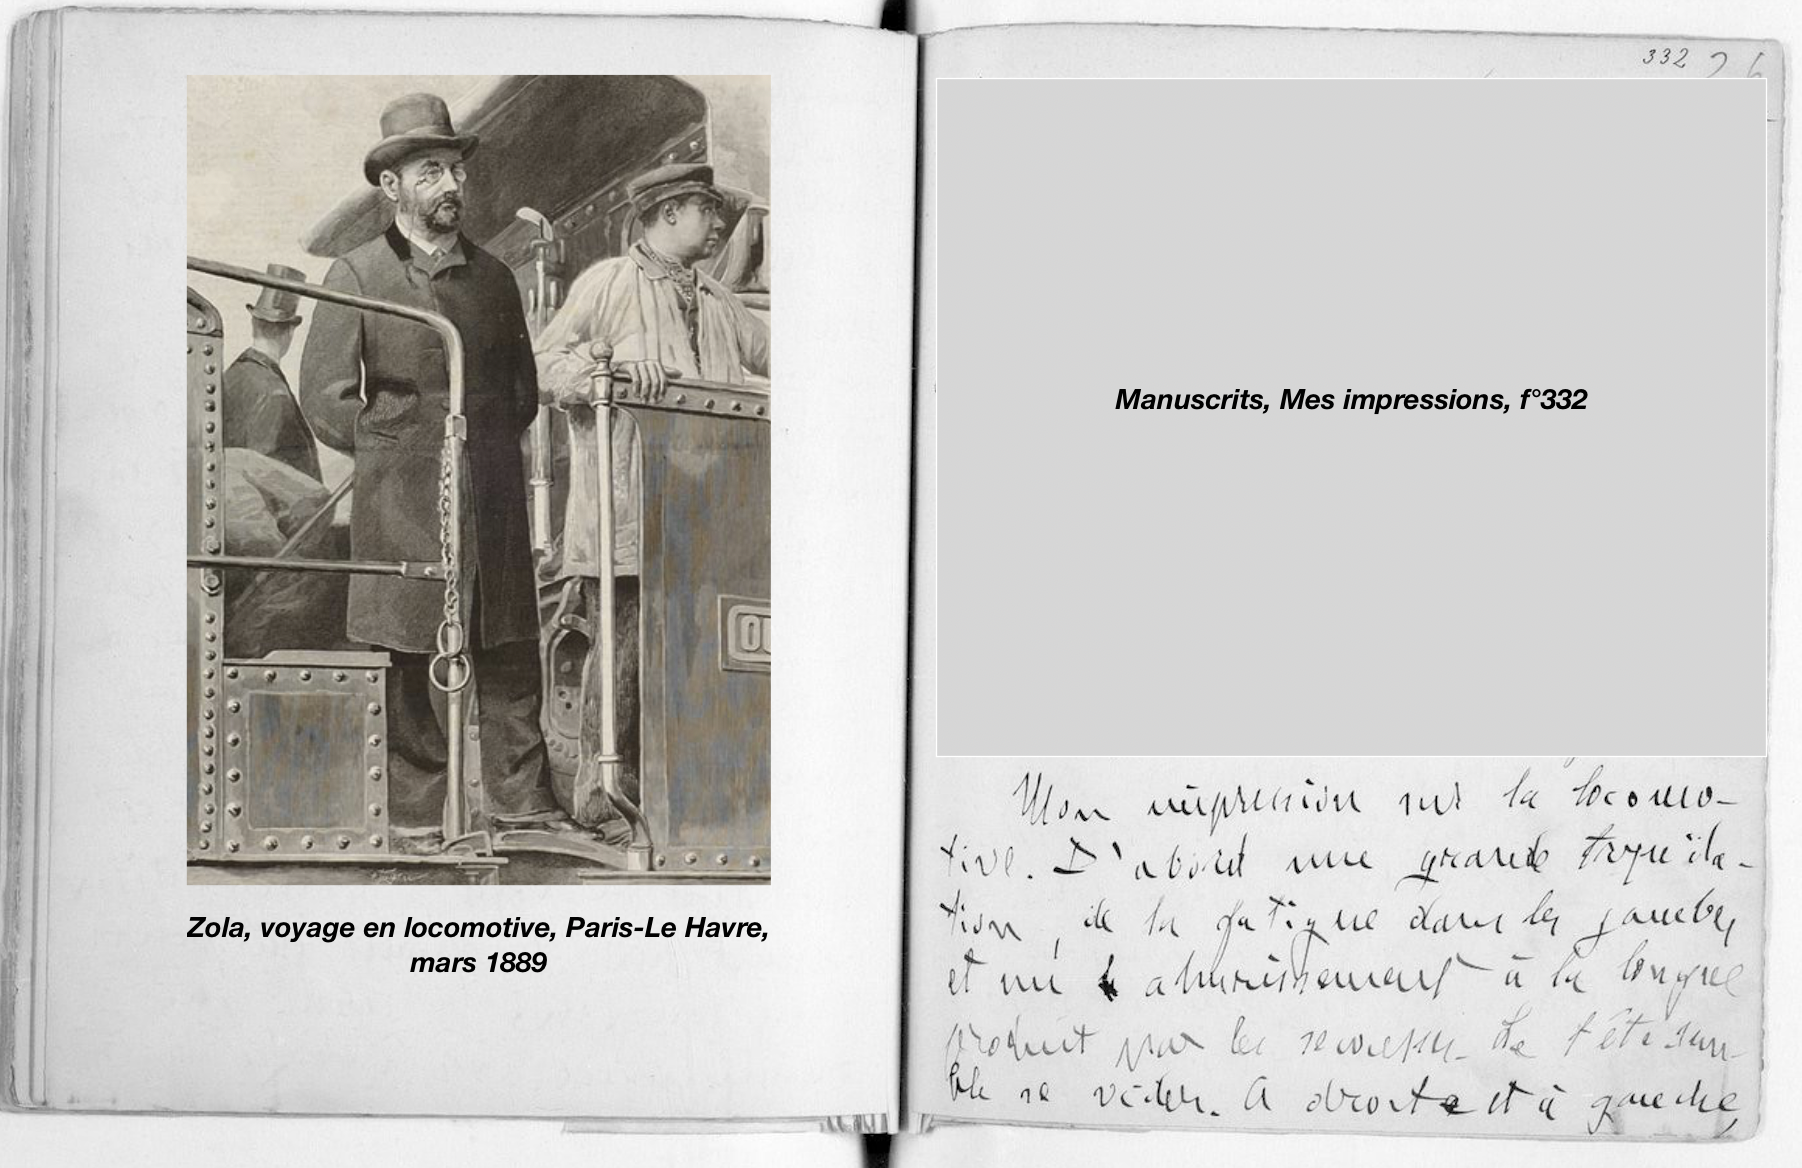 Zola, voyage en locomotive, Paris-Le Havre,
mars 1889
332
Manuscrits, Mes impressions, f°332
Mon impression sur la locomo-
tive. D'abord une grande trépida-
tion, de la fatigue dans les jambes
et un ahurissement à la longue
produit par les secousses. La tête sem-
ble se vider. A droite et à gauche,
OU